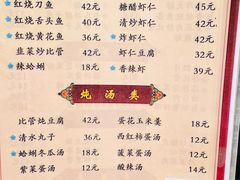 红烧刀鱼 42元 糖醋虾仁 45元
红烧舌头鱼 40元 小炒虾仁 42元
红烧黄花鱼 36元 炸虾仁 42元
韭菜炒比管 42元 虾仁豆腐 32元
辣蛤蜊 18元 香辣虾 39元
炖汤类
比管炖豆腐 42元 蛋花玉米羹 18元
清水丸子 36元 西红柿蛋汤 12元
蛤蜊冬瓜汤 18元 菠菜蛋汤 12元
紫菜蛋汤 12元 酸辣汤 14元